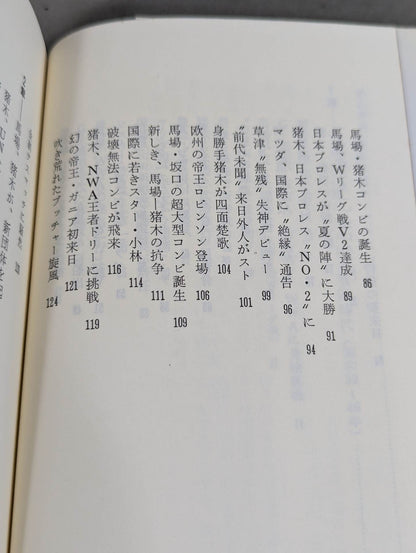 馬場・猪木コンビの誕生 86
馬場、Wリーグ戦V2達成 89
日本プロレスが〝夏の陣〟に大勝 91
猪木、日本プロレス〝NO・2〟に 94
マツダ、国際に〝絶縁〟通告 96
草津〝無残〟失神デビュー 99
〝前代未聞〟来日外人がスト 101
身勝手猪木が四面楚歌 104
欧州の帝王ロビンソン登場 106
馬場・坂口の超大型コンビ誕生 109
新しき、馬場―猪木の抗争 111
国際に若きスター・小林 114
破壊無法コンビが飛来 116
猪木、NWA王者ドリーに挑戦 119
幻の帝王・ガニア初来日 121
吹き荒れたブッチャー旋風 124
2章
馬場、猪木が、新団体を